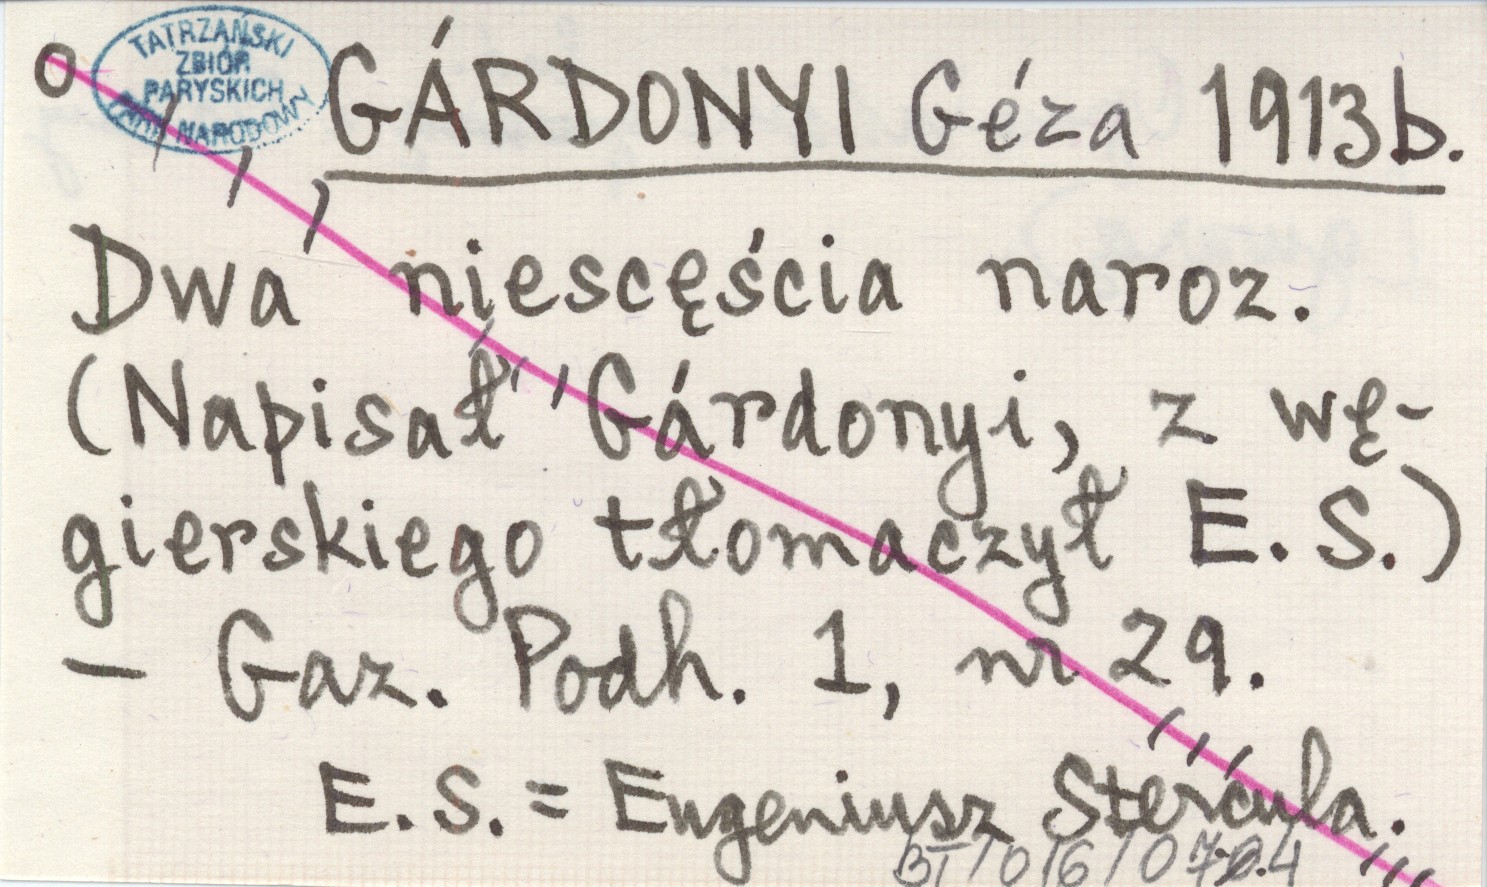 O
TATRZAŃSKI
ZBIÓR
PARYSKICH
NARODOWY
GÁRDONYI Géza 1913b.
Dwa niescęścia naroz.
(Napisał Gárdonyi, z wę-
gierskiego tłomaczył E. S.)
— Gaz. Podh. 1, nr 29.
E. S. = Eugeniusz Stercula.
BT/016/0